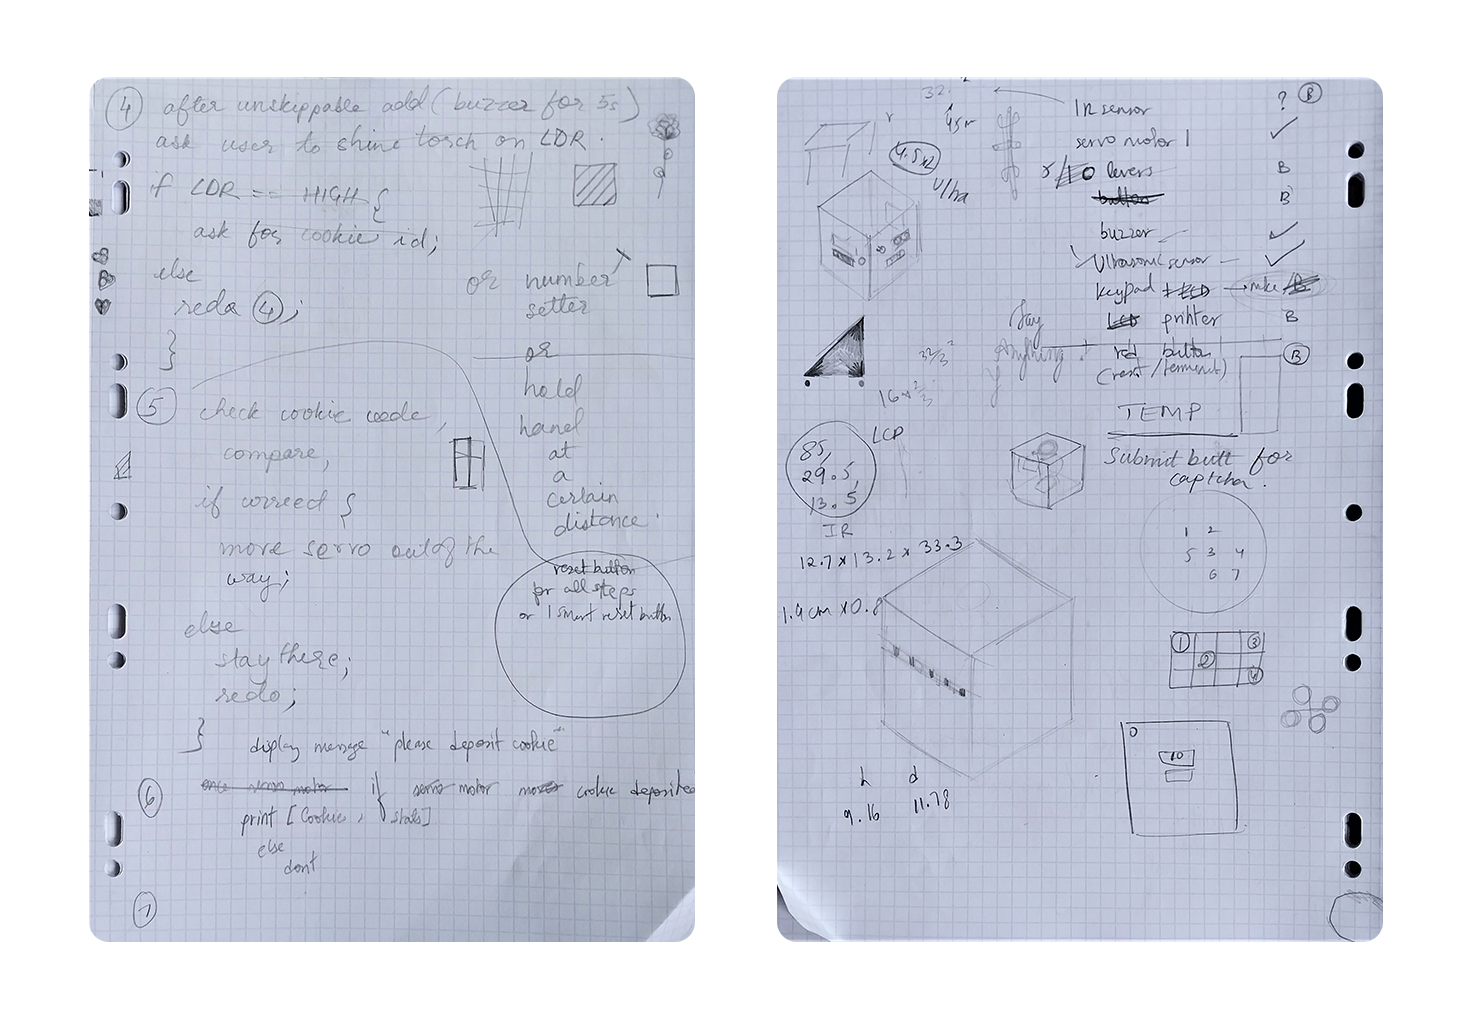 4 after unskippable add (buzzer for 5s)
ask user to shine torch on LDR.
if LDR == HIGH {
ask for cookie id;
else
redo 4;
}
or number
setter
or
hold
hand
at
a
certain
distance.
5 check cookie code,
compare,
if correct {
move servo out of the
way;
else
stay there;
redo;
}
reset button
for all steps
or 1 smart reset button
display message "please deposit cookie"
6 once servo motor if servo motor moves cookie deposited
print [Cookie, stats]
else
dont
7
32.
IR sensor ? B
servo motor 1
levers B
button B
buzzer
Ultrasonic sensor
keypad + LCD → make B
LCD printer B
red button B
(reset/terminate)
45
r
4.5x2
Ultra
Say
Anything!
32/3
16 x 2/3
TEMP
Submit butt for
captcha.
LCD
85,
29.5,
13.5
IR
12.7 x 13.2 x 33.3
1.4cm x 0.8
1 2
5 3 4
6 7
1 3
2
4
0
10
h d
9.16 11.78